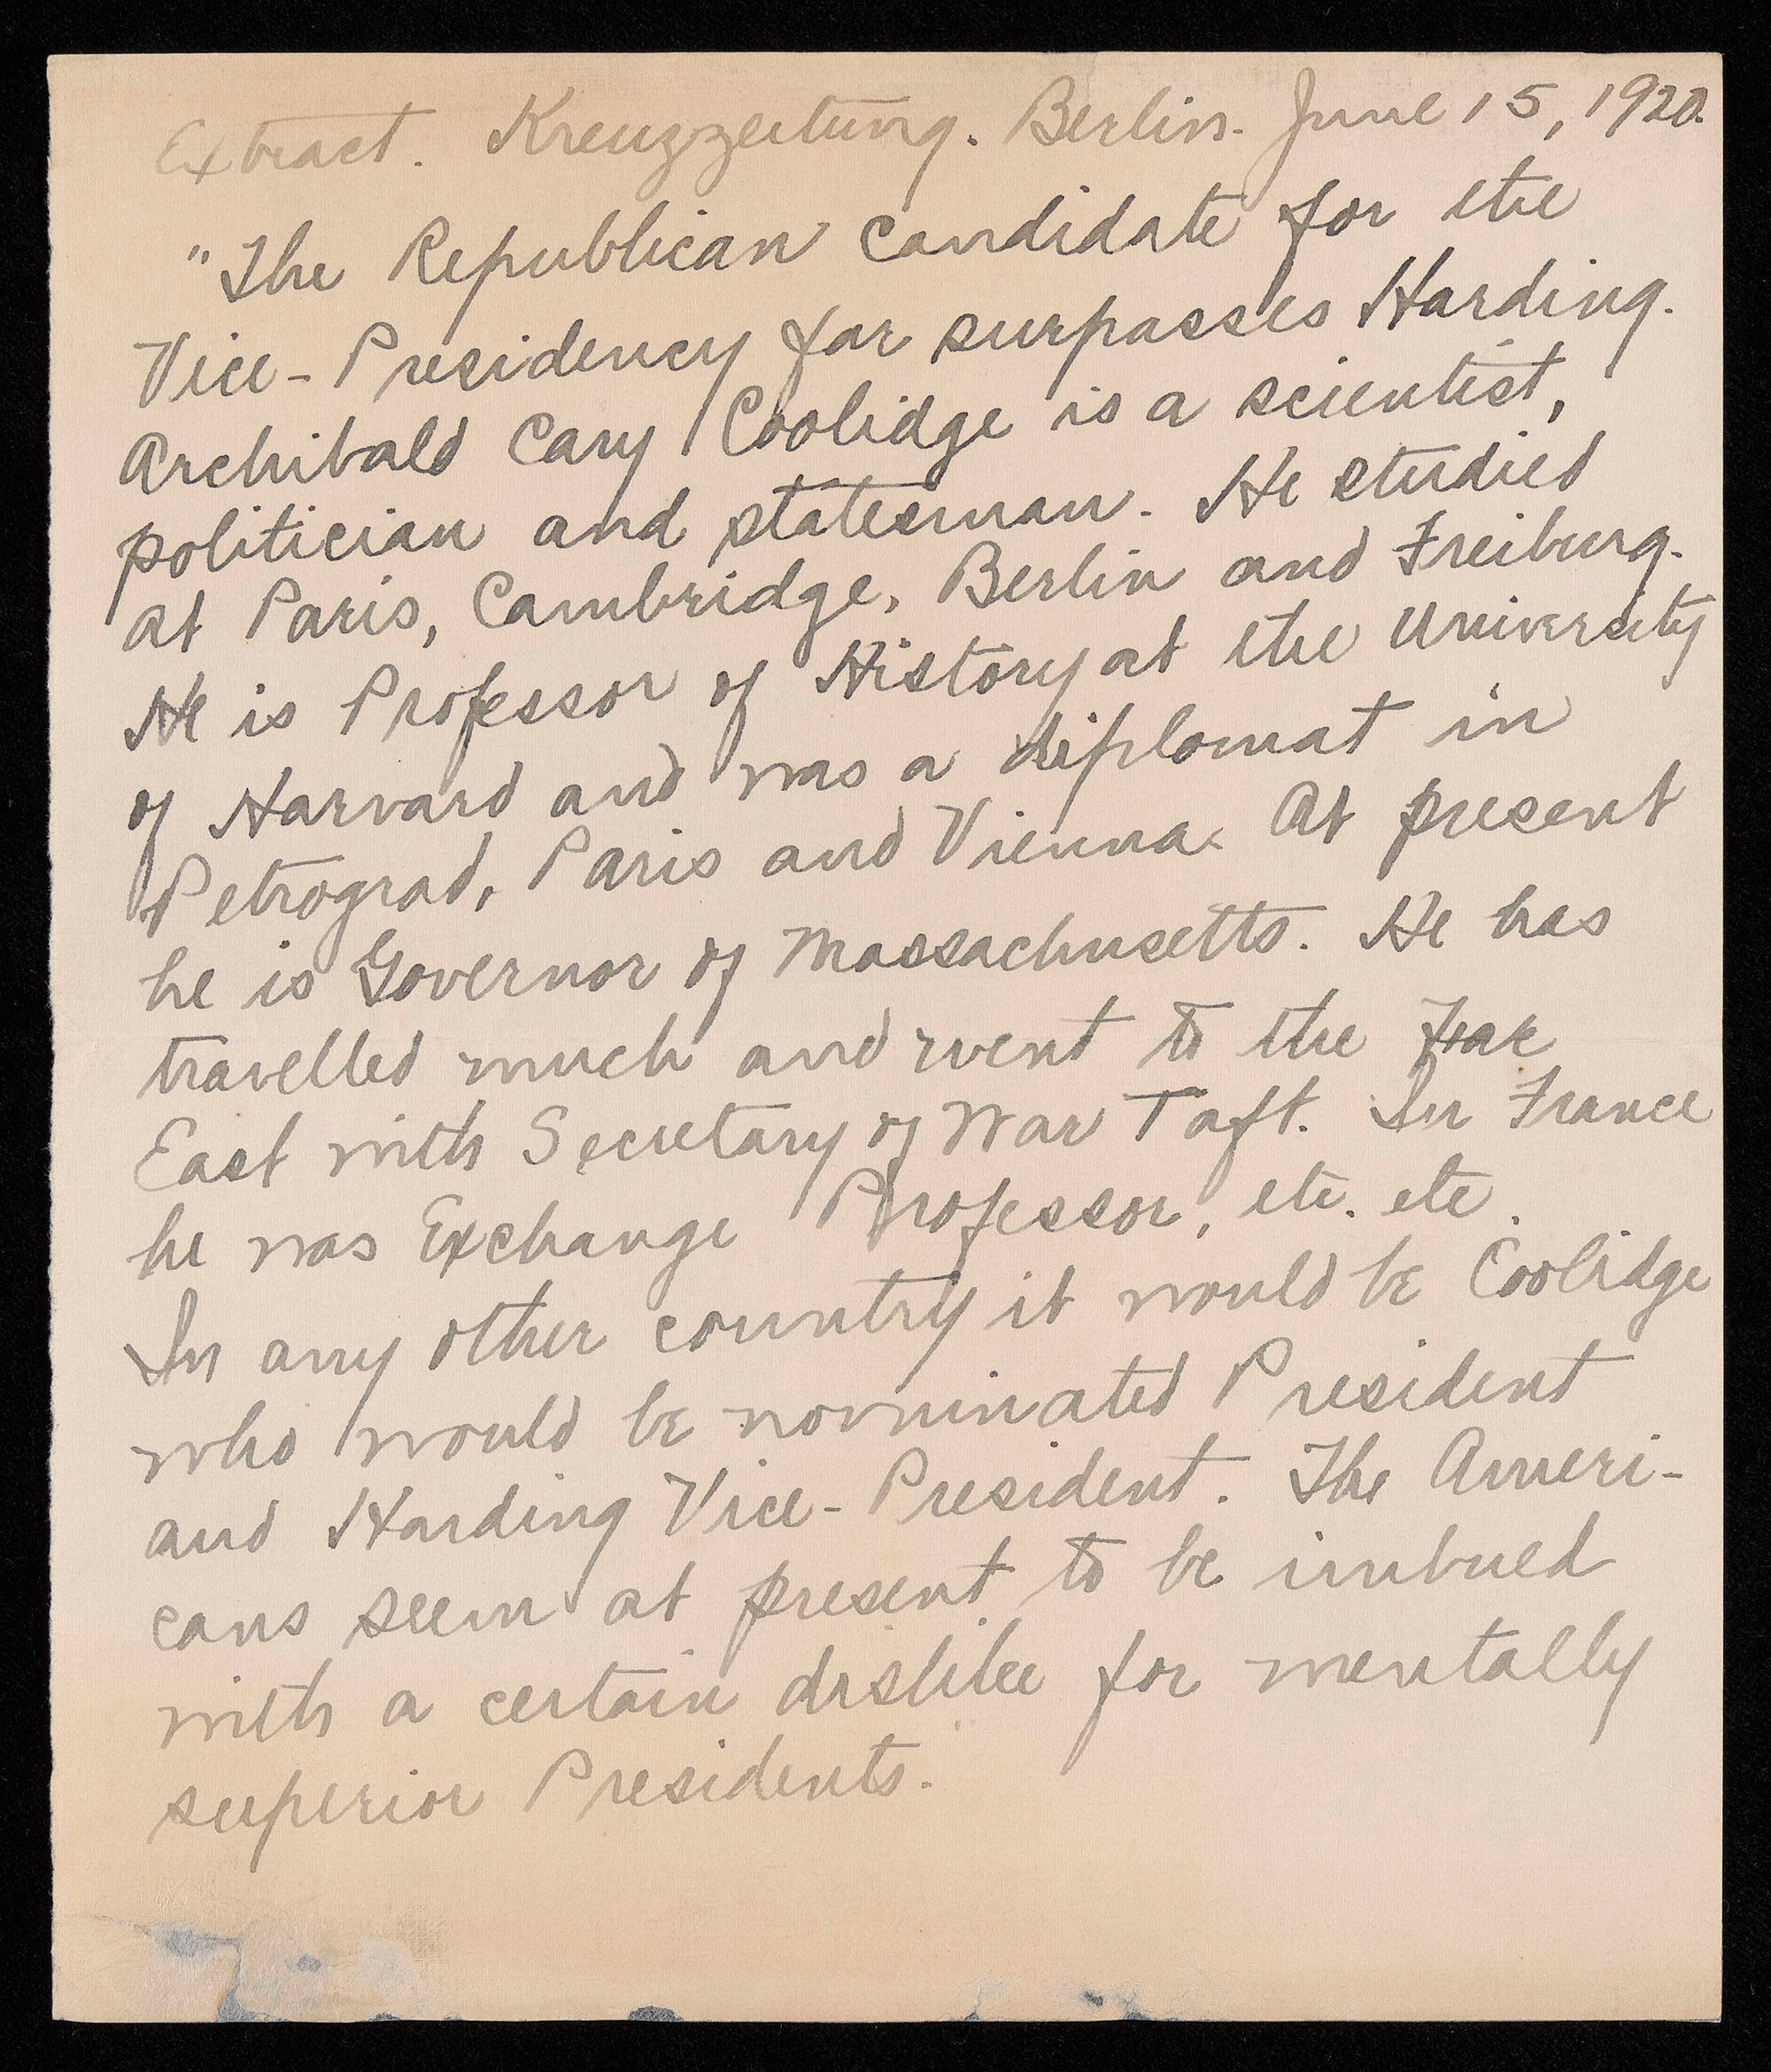 Extract. Kreuzzeitung. Berlin. June 15, 1920.
"The Republican Candidate for the
Vice-Presidency far surpasses Harding.
Archibald Cary Coolidge is a scientist,
politician and statesman. He studied
at Paris, Cambridge, Berlin and Freiburg.
He is Professor of History at the University
of Harvard and was a diplomat in
Petrograd, Paris and Vienna. At present
he is Governor of Massachusetts. He has
travelled much and went to the Far
East with Secretary of War Taft. In France
he was Exchange Professor, etc. etc.
In any other country it would be Coolidge
who would be nominated President
and Harding Vice-President. The Ameri-
cans seem at present to be imbued
with a certain dislike for mentally
superior Presidents."